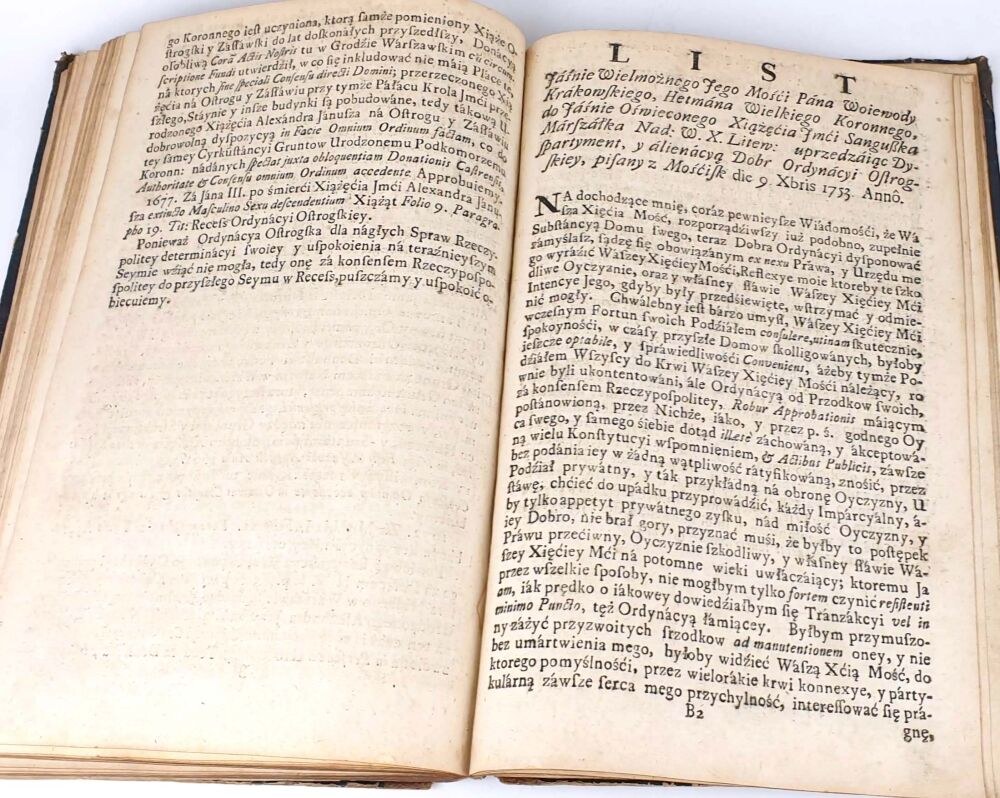 go Koronnego iest uczyniona, ktorą samże pomieniony Xiąże O-
strogski y Zasławski do lat doskonałych przyszedszy, Donácyą
osobliwą Corā Actis Nostris tu w Grodzie Wárszáwskim cū circum-
scriptione Fundi utwierdził, w co się inkludować nie máią Pláce te,
ná ktorych sine speciali Consensu directi Domini; przerzeczonego Xią-
żęćia ná Ostrogu y Zásławiu przy tymże Páłacu Krolá Jmći prze-
szłego, Stáynie y insze budynki są pobudowáne, tedy tákową U-
rodzonego Xiążęćia Alexándrá Jánuszá ná Ostrogu y Zásławiu
dobrowolną dyspozycyą in Facie Omnium Ordinum factam, co do
tey sámey Cyrkustáncyi Gruntow Urodzonemu Podkomorzemu
Koronn: nádánych spectat juxta obloquentiam Donationis Castrensis,
Authoritate & Consensu omnium Ordinum accedente Approbuiemy.
1677. Zá Jáná III. po śmierći Xiążęćia Jmći Alexándrá Jánu-
szá extincto Masculino Sexu descendentium Xiążąt Folio 9. Paragra-
pho 19. Tit: Recess Ordynácyi Ostrogskiey.
Ponieważ Ordynácya Ostrogska dla nagłych Spraw Rzeczy-
politey determinácyi swoiey y uspokoienia ná teraźnieyszym
Seymie wźiąć nie mogłá, tedy onę zá konsensem Rzeczypospo-
spolitey do przyszłego Seymu w Recess, puszczámy y uspokoić o-
biecuiemy.
L I S T
Jáśnie Wielmożnego Jego Mośći Páná Woiewody
Krákowskiego, Hetmáná Wielkiego Koronnego,
do Jáśnie Oświeconego Xiążęćia Jmći Sánguszká
Márszałká Nad: W. X. Litew: uprzedzáiąc Dy-
spartyment, y álienácyą Dobr Ordynácyi Ostrog-
skiey, pisany z Mośćisk die 9. Xbris 1753. Annô.
NA dochodzące mnię, coraz pewnieysze Wiádomośći, że Wá-
sza Xięćia Mość, rozporządźiwszy iuż podobno, zupełnie
Substáncyą Domu swego, teraz Dobrá Ordynácyi dysponowáć
zámyślasz, sądzę się obowiązánym ex nexu Práwá, y Urzędu me
go wyráźić Wászey Xięćiey Mośći, Reflexye moie ktoreby te szko
dliwe Oyczyznie, oraz y własney sławie Wászey Xięćiey Mći
Intencye Jego, gdyby były przedśiewźięte, wstrzymáć y odmie-
nić mogły. Chwálebny iest bárzo umysł, Wászey Xięćiey Mći
wczesnym Fortun swoich Podźiałem consulere, utinam skutecznie,
spokoynośći, w czásy przyszłe Domow skolligowánych, byłoby
ieszcze optabile, y spráwiedliwośći Conveniens, áżeby tymże Po-
dźiáłem Wszyscy do Krwi Wászey Xięćiey Mośći náleżący, ro
wnie byli ukontentowáni, ále Ordynácyą od Przodkow swoich,
zá konsensem Rzeczypospolitey, Robur Approbationis máiącym
postánowioną, przez Nichże, iáko, y przez p. ś. godnego Oy
cá swego, y sámego śiebie dotąd illæsè záchowáną, y ákceptowá-
ną wielu Konstytucyi wspomnieniem, & Actibus Publicis, záwsze
bez podánia iey w żadną wątpliwość rátyfikowáną, znośić, przez
Podźiał prywátny, y ták przykłádną ná obronę Oyczyzny, U
stáwę, chćieć do upadku przyprowádźić, káżdy Impárcyálny, á-
by tylko áppetyt prywátnego zysku, nád miłość Oyczyzny, y
iey Dobro, nie brał gory, przyznáć muśi, że byłby to postępek
Práwu przećiwny, Oyczyznie szkodliwy, y włásney sławie Wá-
szey Xięćiey Mći ná potomne wieki uwłaczáiący; ktoremu Ja
przez wszelkie sposoby, nie mogłbym tylko fortem czynić resistenti
am, iák prędko o iákowey dowiedźiałbym się Tránzákcyi vel in
minimo Puncto, tęż Ordynácyą łamiącey. Byłbym przymuszo-
ny záżyć przyzwoitych srzodkow ad manutentionem oney, y nie
bez umártwienia mego, byłoby widźieć Wászą Xćią Mość, do
ktorego pomyślnośći, przez wielorákie krwi konnexye, y párty-
kulárną záwsze sercá mego przychylność, interessowáć się prá-
B2
gnę,